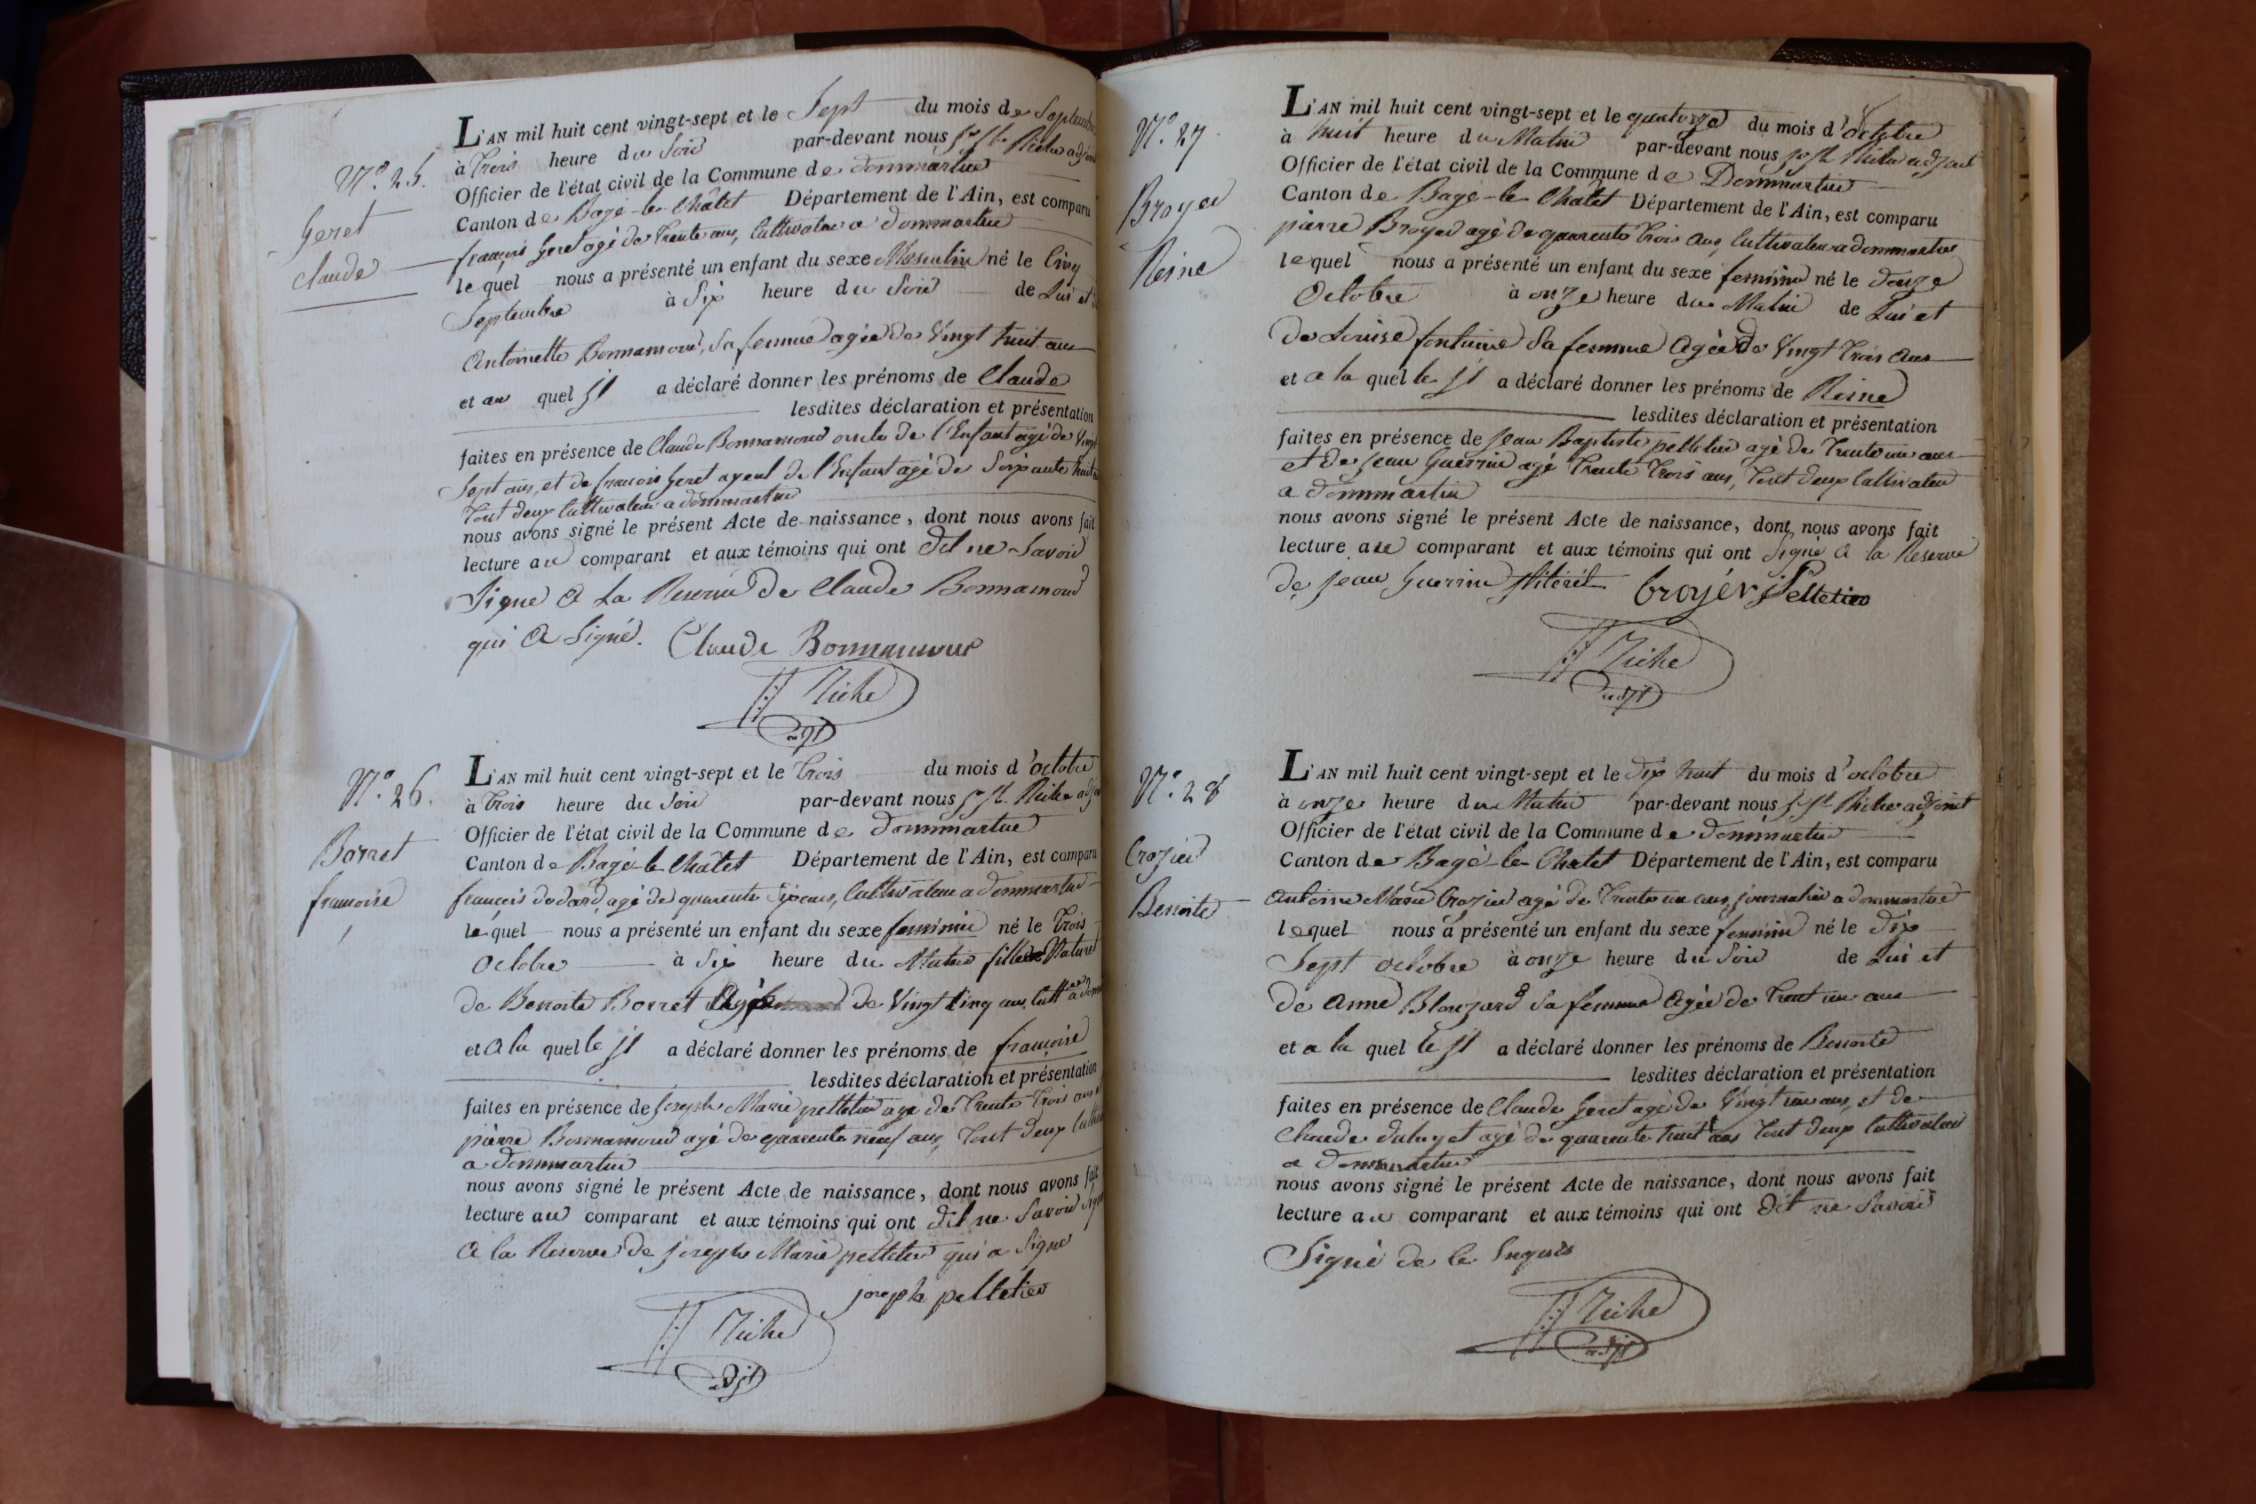 N.º 25.
Geret
Claude
L'AN mil huit cent vingt-sept et le Sept du mois de Septembre
à trois heure du Soir par-devant nous Riche adjoint
Officier de l'état civil de la Commune de dommartin
Canton de Bagé-le-Châtel Département de l'Ain, est comparu
françois Geret agé de trente ans, Cultivateur a dommartin
lequel nous a présenté un enfant du sexe Masculin né le Cinq
Septembre à Six heure du Soir de Lui et
Antoinette Bonnamour, Sa femme agée de Vingt huit ans
et au quel Jl a déclaré donner les prénoms de Claude
lesdites déclaration et présentation
faites en présence de Claude Bonnamour oncle de l'Enfant agé de Vingt
Sept ans, et de françois Geret ayeul de l'Enfant agé de Soixante huit
tout deux Cultivateur a dommartin
nous avons signé le présent Acte de naissance, dont nous avons fait
lecture au comparant et aux témoins qui ont dit ne Savoir
Signé a La Reserve de Claude Bonnamour
qui a Signé. Claude Bonnamour
Riche
adjt
N.º 26.
Borret
françoise
L'AN mil huit cent vingt-sept et le trois du mois d'octobre
à trois heure du Soir par-devant nous Riche
Officier de l'état civil de la Commune de dommartin
Canton de Bagé-le-Châtel Département de l'Ain, est comparu
françois dodard, agé de quarante Six ans, Cultivateur a dommartin
lequel nous a présenté un enfant du sexe feminin né le trois
octobre à Six heure du Matin fille Naturel
de Benoite Borret Agée de Vingt Cinq ans, Cult
et a la quelle Jl a déclaré donner les prénoms de françoise
lesdites déclaration et présentation
faites en présence de Joseph Marie pelletier agé de trente trois ans
pierre Bonnamour agé de quarante neuf ans, tout deux
a dommartin
nous avons signé le présent Acte de naissance, dont nous avons fait
lecture au comparant et aux témoins qui ont dit ne Savoir
a la Reserve de Joseph Marie pelletier qui a Signé
joseph pelletier
Riche
adjt
N.º 27
Broyer
Reine
L'AN mil huit cent vingt-sept et le quatorze du mois d'octobre
à huit heure du Matin par-devant nous Riche adjoint
Officier de l'état civil de la Commune de Dommartin
Canton de Bagé-le-Châtel Département de l'Ain, est comparu
pierre Broyer agé de quarante trois ans, Cultivateur a dommartin
lequel nous a présenté un enfant du sexe feminin né le douze
Octobre à onze heure du Matin de Lui et
de Louise fontaine Sa femme Agée de Vingt trois ans
et a la quelle Jl a déclaré donner les prénoms de Reine
lesdites déclaration et présentation
faites en présence de Jean Baptiste pelletier agé de trente un ans
et de Jean Guerrin agé trente trois ans, tout deux Cultivateur
a dommartin
nous avons signé le présent Acte de naissance, dont nous avons fait
lecture au comparant et aux témoins qui ont Signé a la Reserve
de Jean Guerrin Jlitéré broyer Pelletier
Riche
adjt
N.º 28
Crozier
Benoite
L'AN mil huit cent vingt-sept et le dix huit du mois d'octobre
à onze heure du Matin par-devant nous Riche adjoint
Officier de l'état civil de la Commune de dommartin
Canton de Bagé-le-Châtel Département de l'Ain, est comparu
antoine Marie Crozier agé de trente un ans, journalier a dommartin
lequel nous a présenté un enfant du sexe feminin né le dix
Sept octobre à onze heure du Soir de Lui et
de anne Blanzard Sa femme Agée de trent un ans
et a la quel le Jl a déclaré donner les prénoms de Benoite
lesdites déclaration et présentation
faites en présence de Claude Geret agé de Vingt un ans, et de
Claude agé de quarante huit ans tout deux Cultivateur
a dommartin
nous avons signé le présent Acte de naissance, dont nous avons fait
lecture au comparant et aux témoins qui ont dit ne Savoir
Signé de le Enquis
Riche
adjt